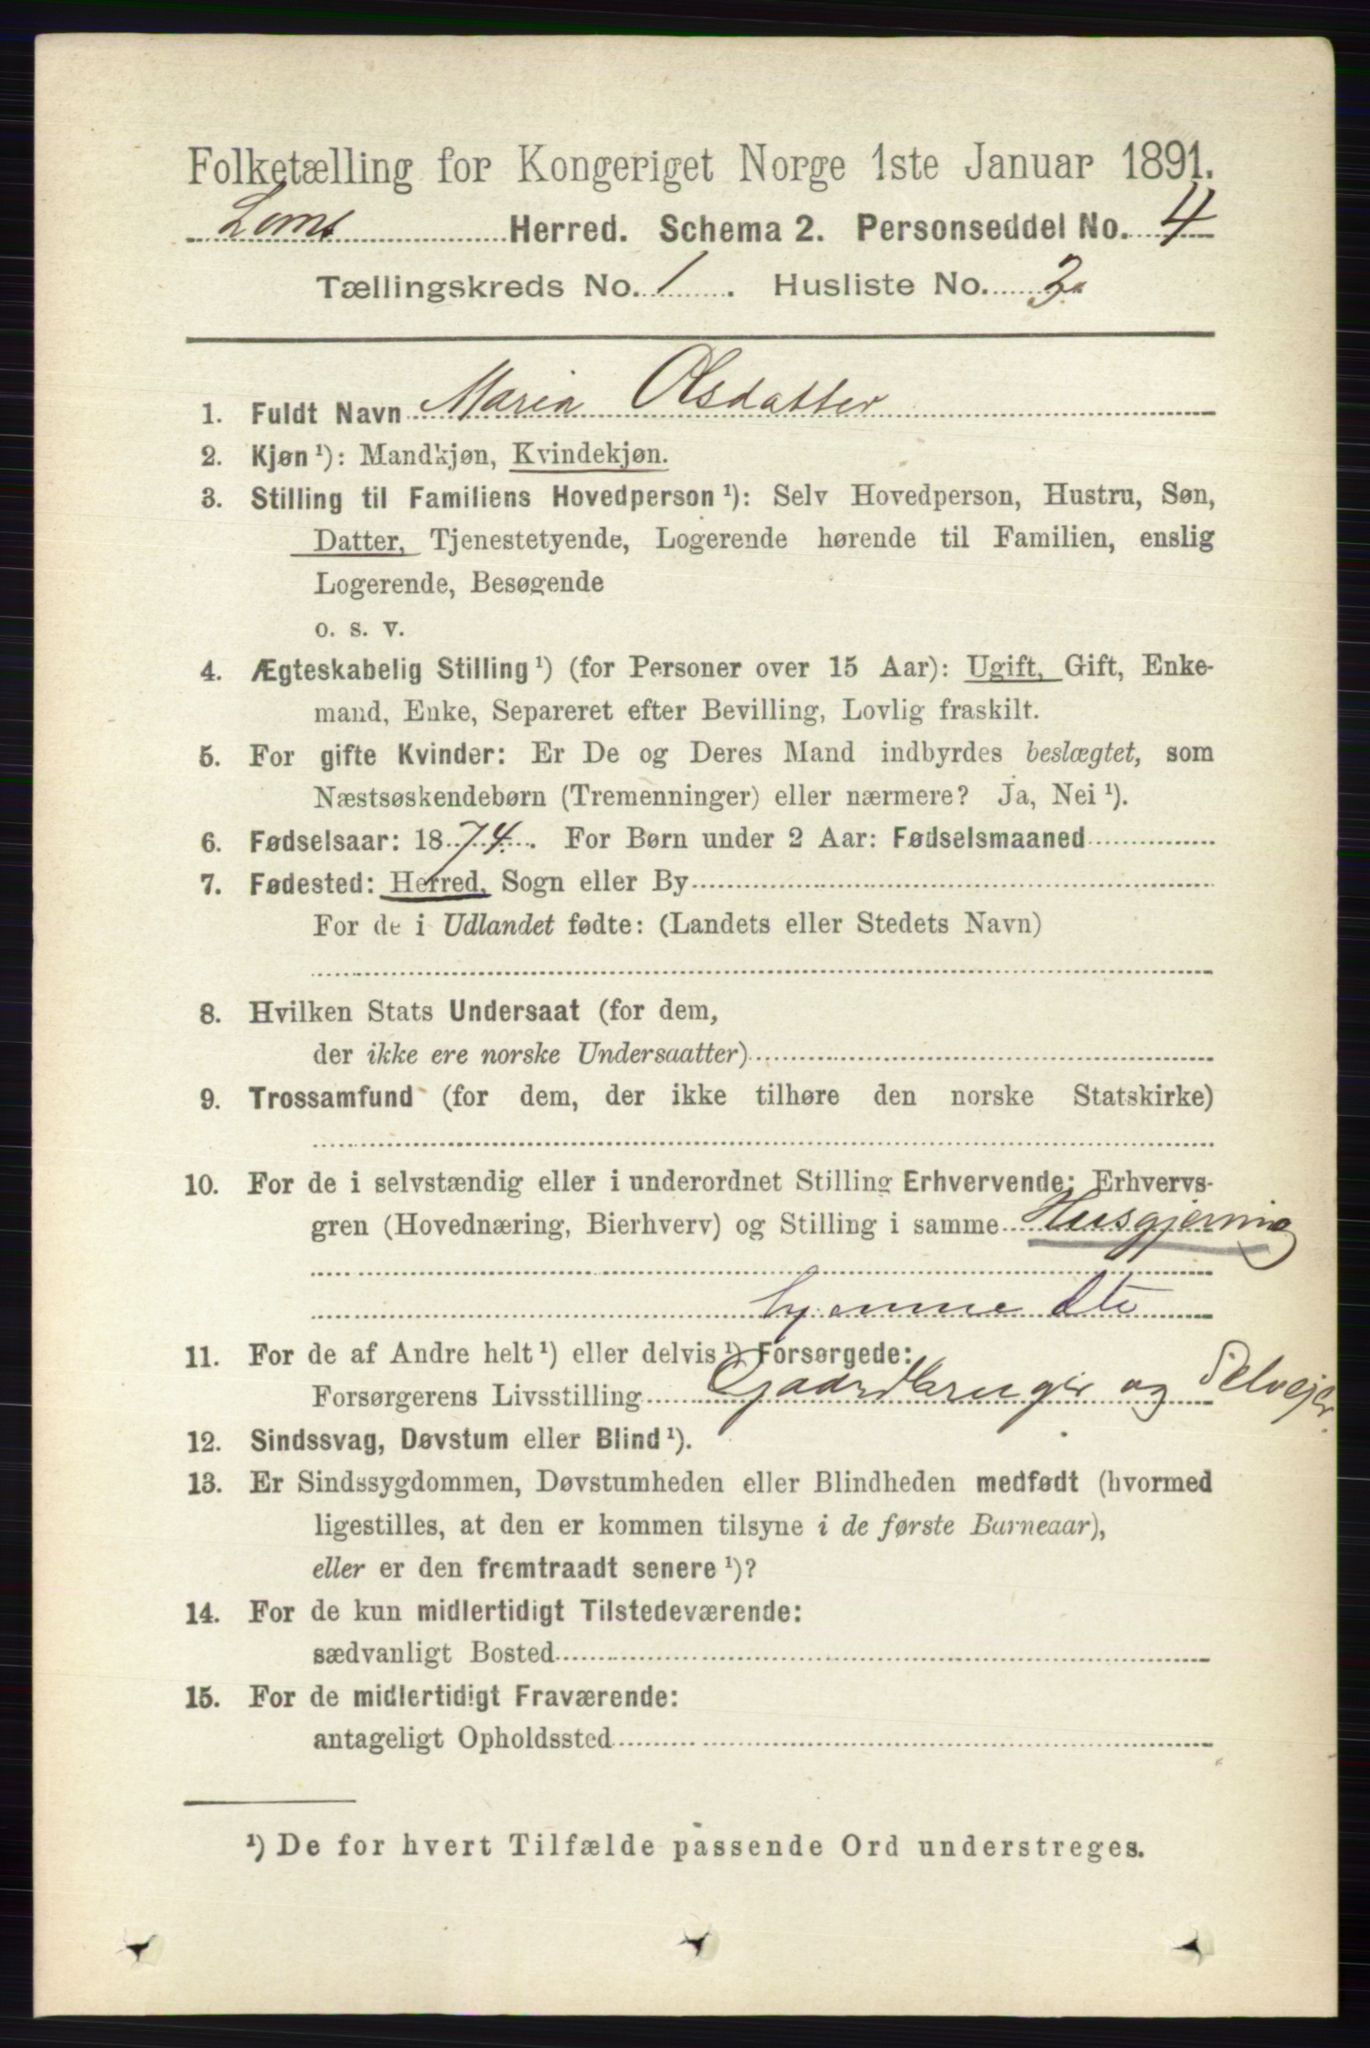 Folketælling for Kongeriget Norge 1ste Januar 1891.
Loms Herred. Schema 2. Personseddel No. 4
Tællingskreds No. 1. Husliste No. 3
1. Fuldt Navn Maria Olsdatter
2. Kjøn ¹): Mandkjøn, Kvindekjøn.
3. Stilling til Familiens Hovedperson ¹): Selv Hovedperson, Hustru, Søn,
Datter, Tjenestetyende, Logerende hørende til Familien, enslig
Logerende, Besøgende
o. s. v.
4. Ægteskabelig Stilling ¹) (for Personer over 15 Aar): Ugift, Gift, Enke-
mand, Enke, Separeret efter Bevilling, Lovlig fraskilt.
5. For gifte Kvinder: Er De og Deres Mand indbyrdes beslægtet, som
Næstsøskendebørn (Tremenninger) eller nærmere? Ja, Nei ¹).
6. Fødselsaar: 1874. For Børn under 2 Aar: Fødselsmaaned
7. Fødested: Herred, Sogn eller By
For de i Udlandet fødte: (Landets eller Stedets Navn)
8. Hvilken Stats Undersaat (for dem,
der ikke ere norske Undersaatter)
9. Trossamfund (for dem, der ikke tilhøre den norske Statskirke)
10. For de i selvstændig eller i underordnet Stilling Erhvervende: Erhvervs-
gren (Hovednæring, Bierhverv) og Stilling i samme Husgjerning
hjemme dtr
11. For de af Andre helt ¹) eller delvis ¹) Forsørgede:
Forsørgerens Livsstilling Gaardbruger og Selvejer
12. Sindssvag, Døvstum eller Blind ¹).
13. Er Sindssygdommen, Døvstumheden eller Blindheden medfødt (hvormed
ligestilles, at den er kommen tilsyne i de første Barneaar),
eller er den fremtraadt senere ¹)?
14. For de kun midlertidigt Tilstedeværende:
sædvanligt Bosted
15. For de midlertidigt Fraværende:
antageligt Opholdssted
¹) De for hvert Tilfælde passende Ord understreges.